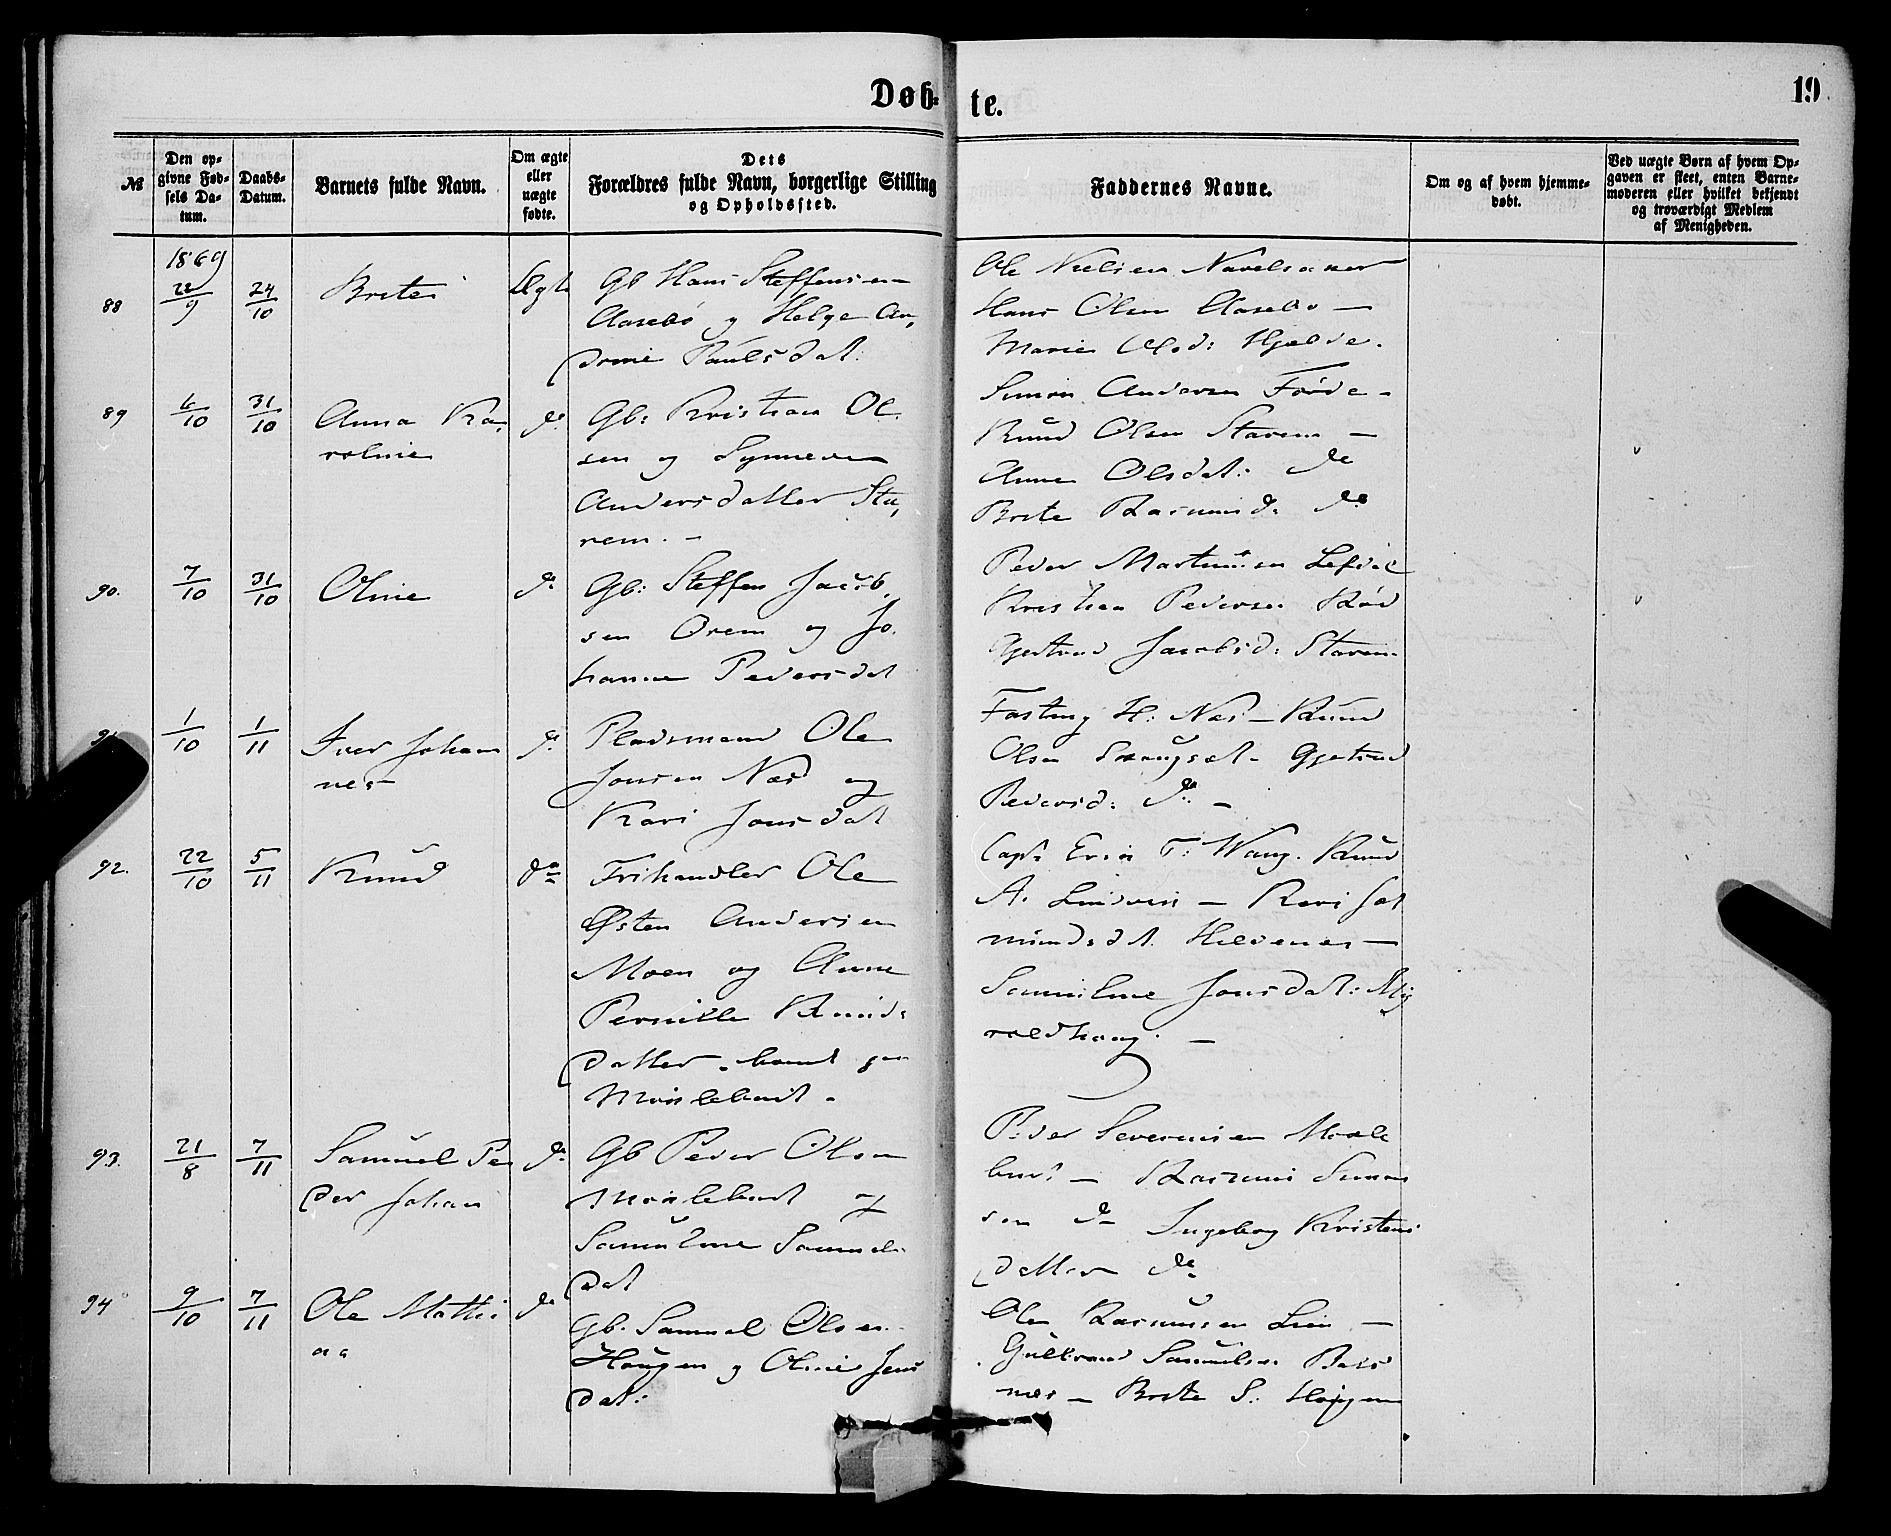 Døb-te.
19
№
Den op-
givne Fød-
sels Da-
tum.
Daabs-
Datum.
Barnets fulde Navn.
Om ægte
eller
uægte
fødte.
Dets
Forældres fulde Navn, borgerlige Stilling
og Opholdssted.
Faddernes Navne.
Om og af hvem hjemme-
døbt.
Ved uægte Børn af hvem Op-
gaven er skeet, enten Barne-
moderen eller hvilket bekjendt
og troværdigt Medlem
af Menigheden.
1869
88
22/9
24/10
Brite
Ægte
Gb Hans Steffensen
Aasebø og Helge An,
drine Paulsdat:
Ole Nielsen Navelsaker
Hans Olsen Aasebø —
Marie Olsd: Hjelde.
89
6/10
31/10
Anna Ka,
roline
do
Gb: Kristian Ol,
sen og Synneve
Andersdatter Sta,
rem. -
Simon Andersen Førde -
Knud Olsen Starem —
Anne Olsdat: do
Brite Rasmusd: do
90.
7/10
31/10
Oline
do
Gb: Steffen Jacob,
sen Orem og Jo,
hanne Pedersdat
Peder Martinusen Lefdal
Kristian Pedersen Rød
Gjertrud Jacobsd: Starem
1/10
1/11
Iver Johan
nes
do
Pladsmand Ole
Jonsen Nes og
Kari Jonsdat
Fasting H: Nes - Knud
Olsen
Gjertrud
Pedersd: do -
92.
22/10
5/11
Knud
do
Frihandler Ole
Østen Andersen
Moen og Anne
Pernille Knuds
datter
Capt:
Wang. Knud
A. Lindvig — Kari
mundsdt.
Hildenes —
Samuline Jonsdat:
roldhaug. —
93.
21/8
7/11
Samuel Pe
der Johan
do
Gb Peder Olsen
og
Samuline Samuels
dat
Peder Severinsen Maale
bust — Rasmus Simon
sen do Ingeborg Kristens
datter do
94
9/10
7/11
Ole Matthi
as
do
Gb. Samuel Olsen
Haugen og Oline Jens
dat:
Ole Rasmusen Lien —
Gullvand Samuelsen Bors
nes — Brite S: Haugen